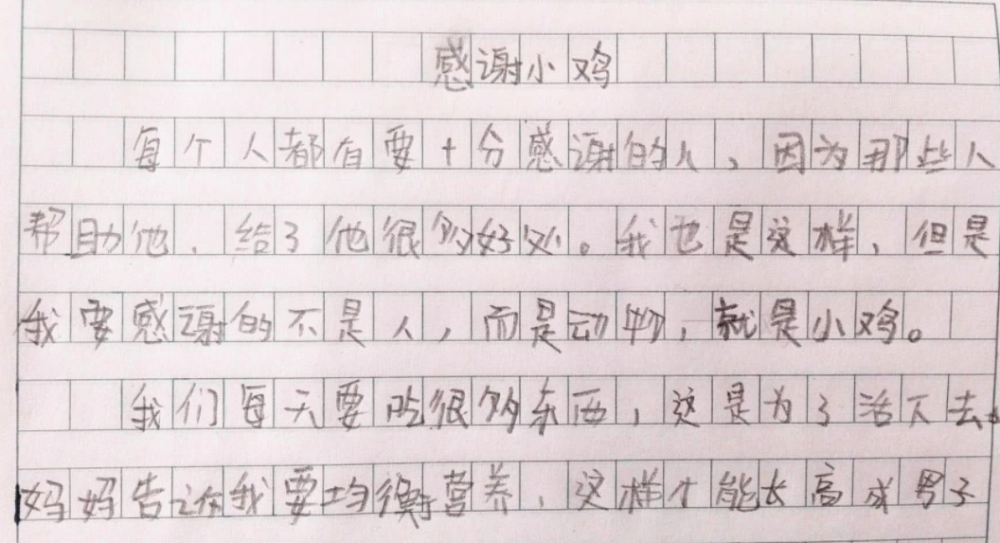 感谢小鸡
每个人都有要十分感谢的人，因为那些人
帮助他，给了他很多好处。我也是这样，但是
我要感谢的不是人，而是动物，就是小鸡。
我们每天要吃很多东西，这是为了活下去。
妈妈告诉我要均衡营养，这样才能长高成男子